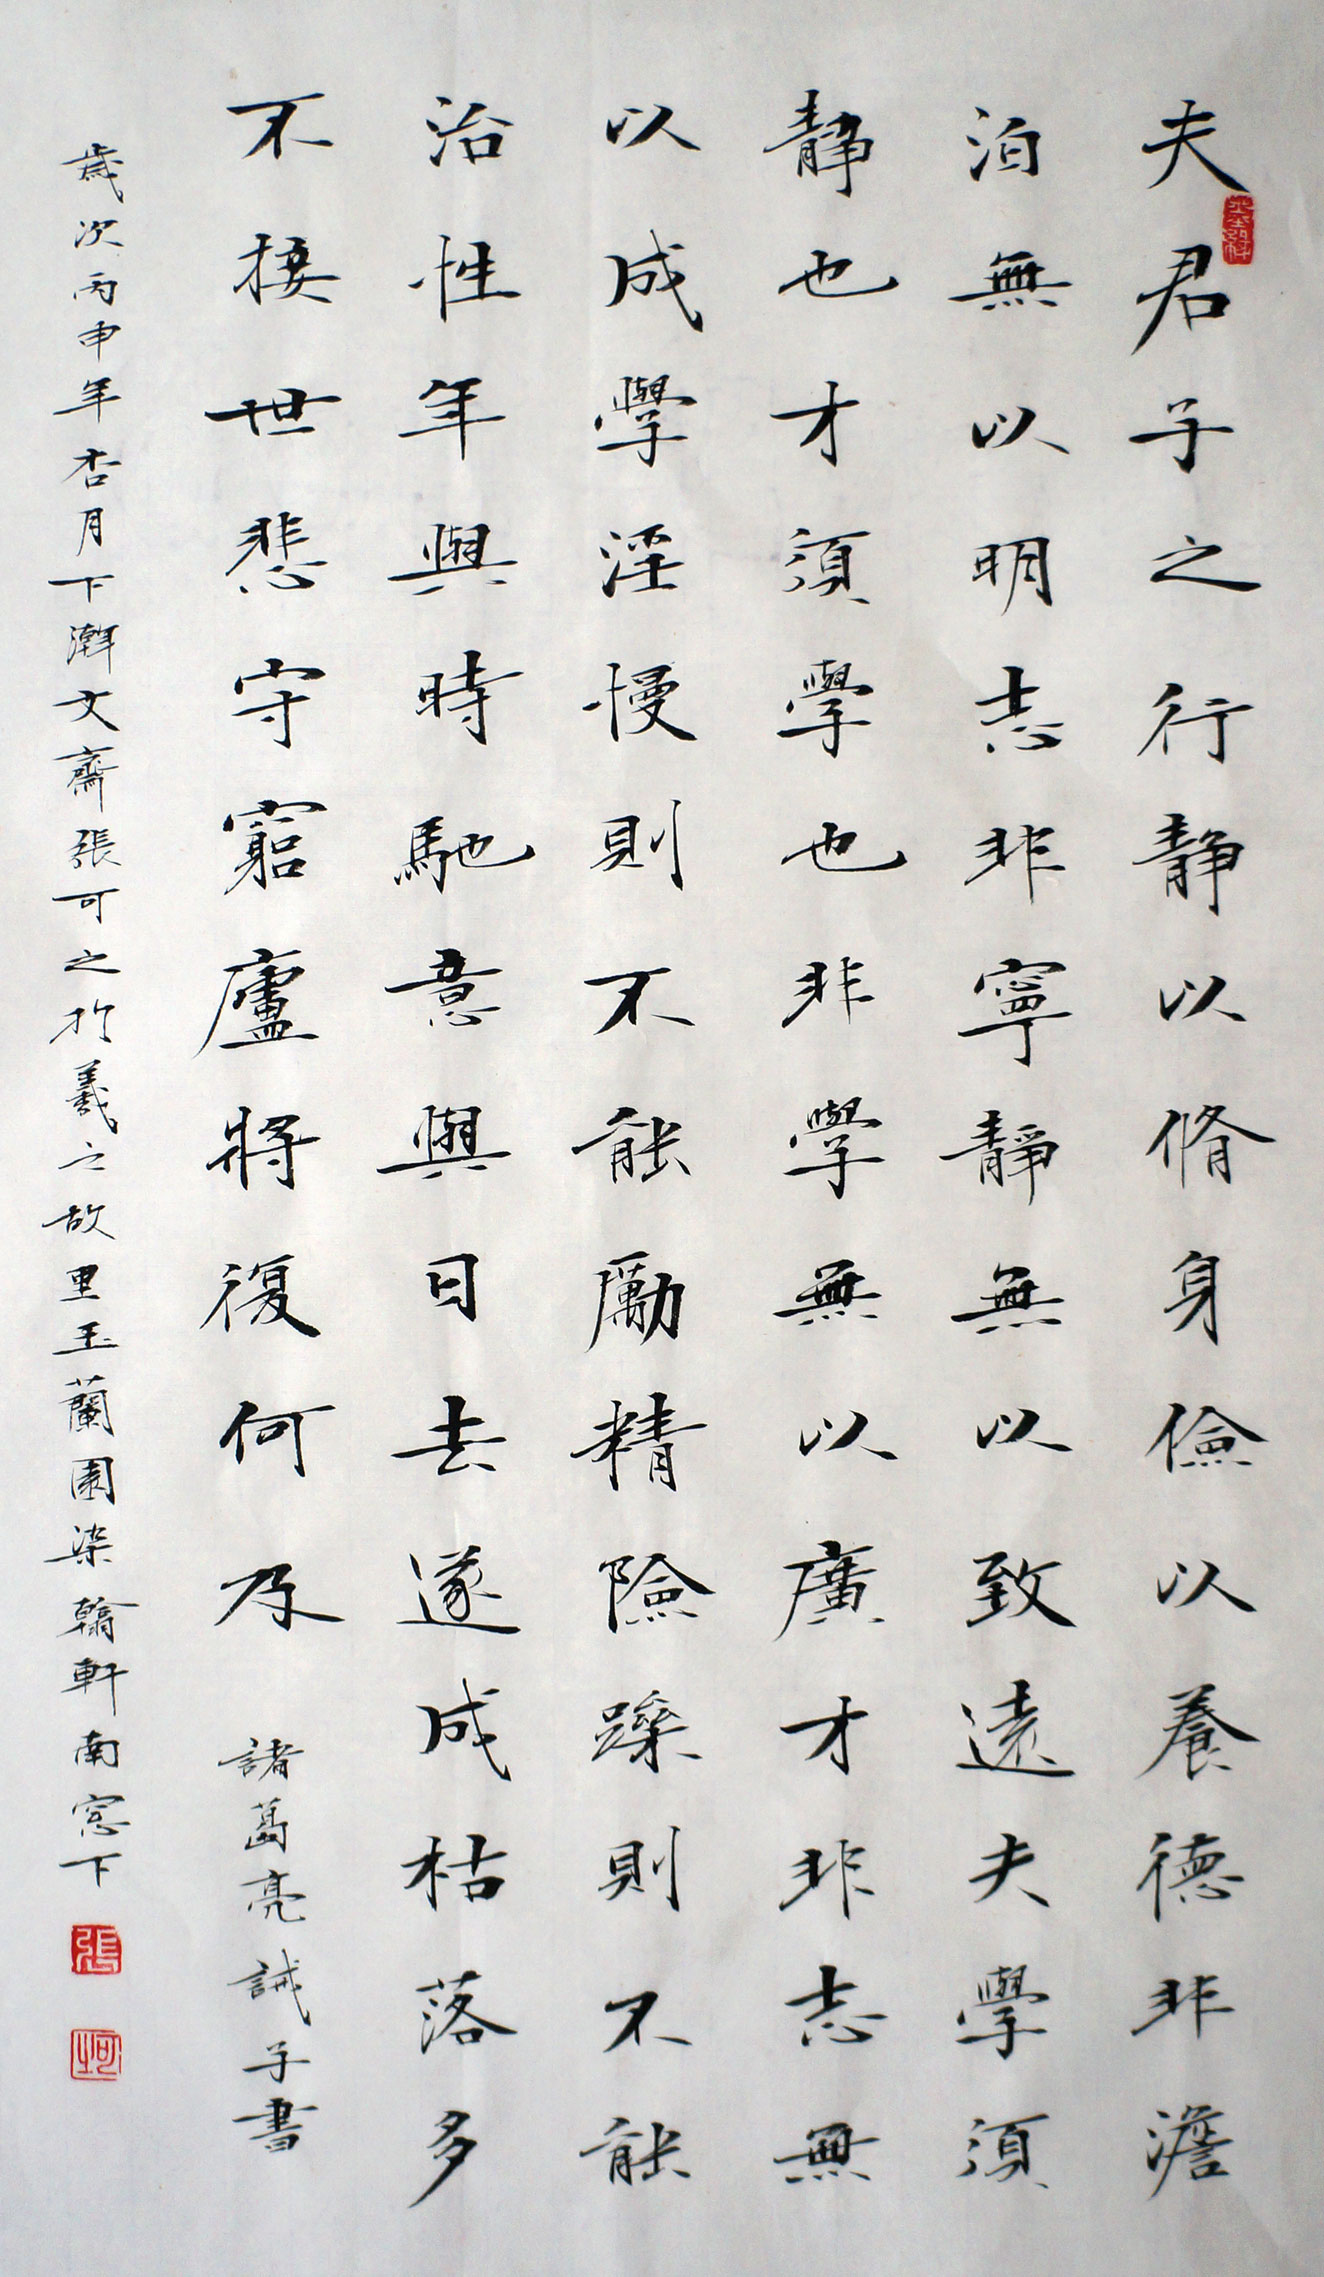 夫君子之行靜以脩身儉以養德非澹
泊無以明志非寧靜無以致遠夫學須
靜也才須學也非學無以廣才非志無
以成學淫慢則不能勵精險躁則不能
治性年與時馳意與日去遂成枯落多
不接世悲守窮廬將復何及
諸葛亮誡子書
歲次丙申年杏月下澣文齋張可之於羲之故里玉蘭園染翰軒南窓下
張
坷